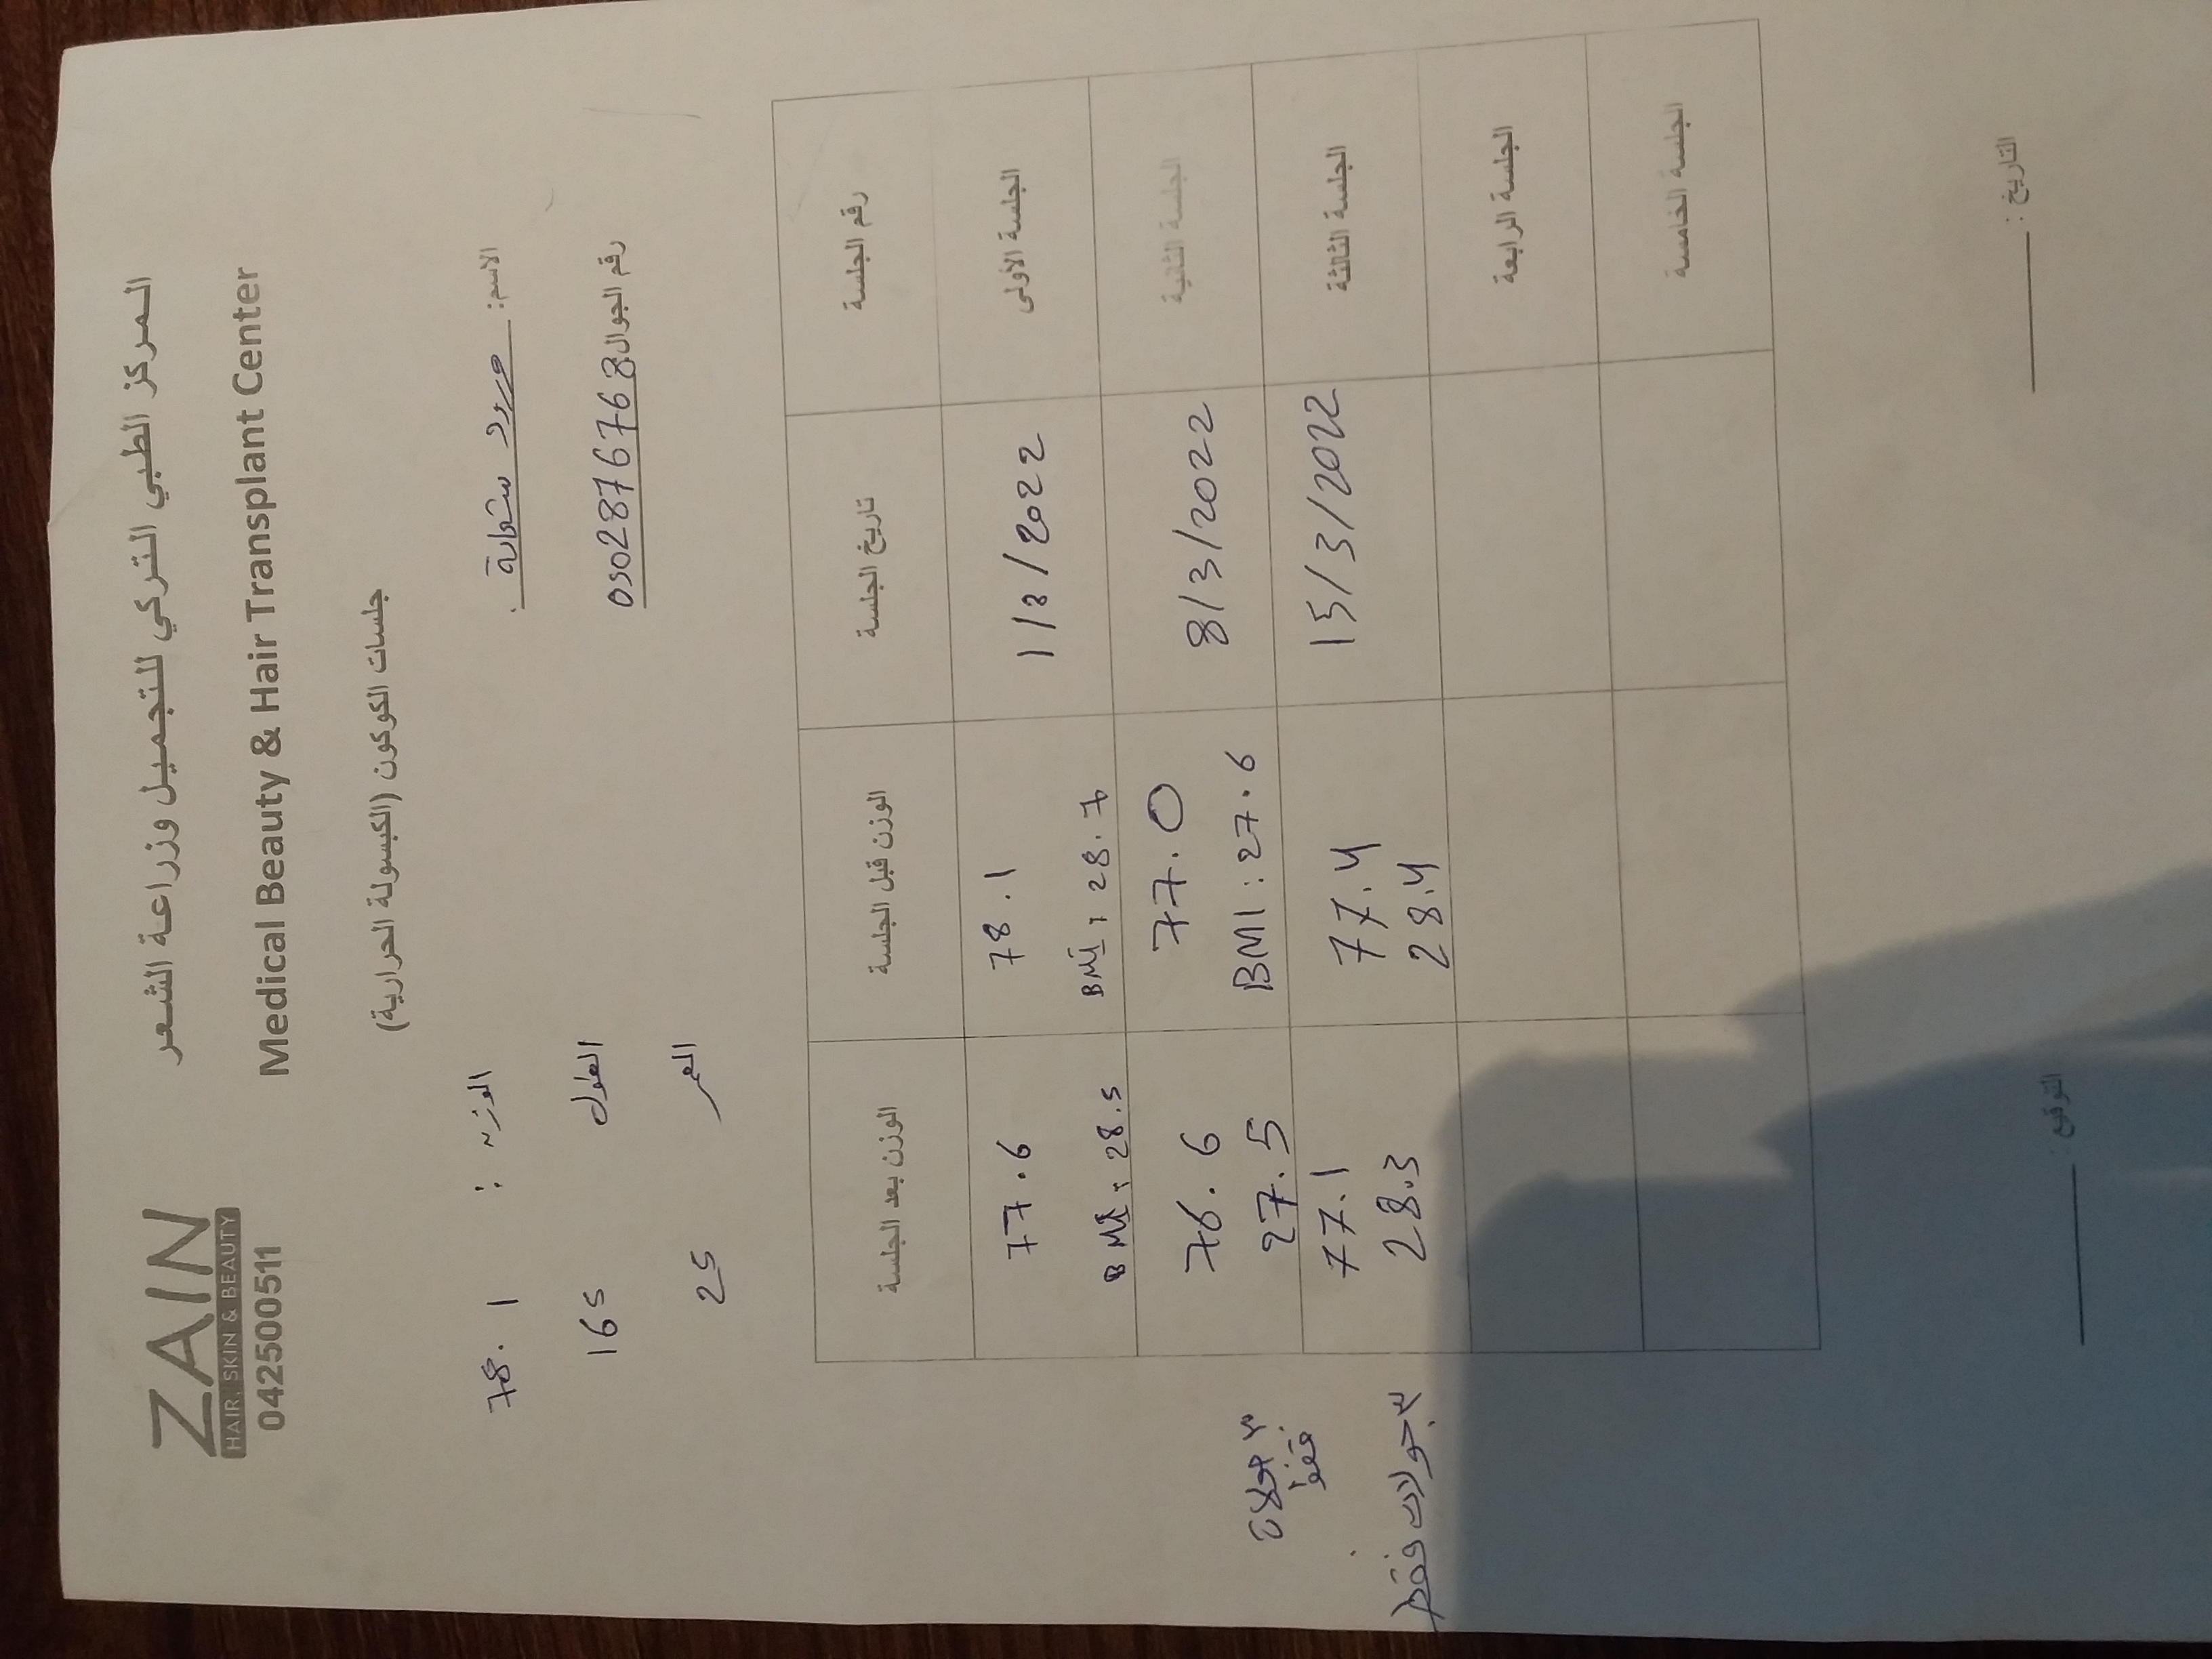 المركز الطبي التركي للتجميل وزراعة الشعر
Medical Beauty & Hair Transplant Center
ZAIN
HAIR, SKIN & BEAUTY
042500511
جلسات الكوكون (الكبسولة الحرارية)
الاسم: ورود
الوزن : 78.1
رقم الجوال: 0502876768
الطول 165
العمر 25
رقم الجلسة تاريخ الجلسة الوزن قبل الجلسة الوزن بعد الجلسة
الجلسة الأولى 1/3/2022 78.1 77.6
BMI: 28.7 BMI: 28.5
الجلسة الثانية 8/3/2022 77.0 76.6
BMI: 27.6 27.5
الجلسة الثالثة 15/3/2022 77.4 77.1
28.4 28.3
٣ جولات
فقط
٣ جولات فقط
الجلسة الرابعة
الجلسة الخامسة
التاريخ :
التوقيع :